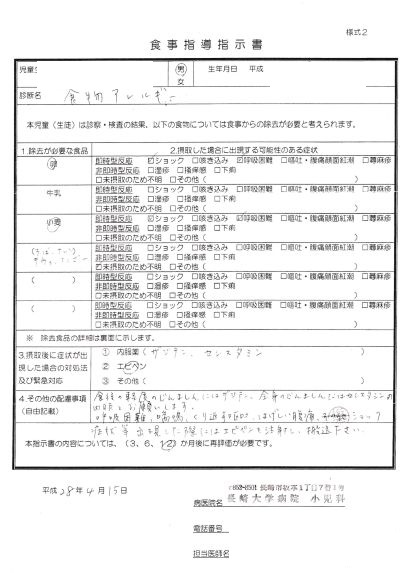 様式2
食事指導指示書
児童 男 女 生年月日 平成
診断名 食物アレルギー
本児童（生徒）は診察・検査の結果、以下の食物については食事からの除去が必要と考えられます。
1.除去が必要な食品 2.摂取した場合に出現する可能性のある症状
卵 即時型反応 ☑ショック □咳き込み ☑呼吸困難 □嘔吐・腹痛顔面紅潮 □蕁麻疹
非即時型反応 □湿疹 □掻痒感 □下痢
□未摂取のため不明 □その他（ ）
牛乳 即時型反応 □ショック □咳き込み □呼吸困難 □嘔吐・腹痛顔面紅潮 □蕁麻疹
非即時型反応 □湿疹 □掻痒感 □下痢
□未摂取のため不明 □その他（ ）
小麦 即時型反応 ☑ショック □咳き込み ☑呼吸困難 □嘔吐・腹痛顔面紅潮 □蕁麻疹
非即時型反応 □湿疹 □掻痒感 □下痢
□未摂取のため不明 □その他（ ）
即時型反応 □ショック □咳き込み □呼吸困難 □嘔吐・腹痛顔面紅潮 □蕁麻疹
非即時型反応 □湿疹 □掻痒感 □下痢
未摂取のため不明 □その他（ ）
（ ） 即時型反応 □ショック □咳き込み □呼吸困難 □嘔吐・腹痛顔面紅潮 □蕁麻疹
非即時型反応 □湿疹 □掻痒感 □下痢
□未摂取のため不明 □その他（ ）
（ ） 即時型反応 □ショック □咳き込み □呼吸困難 □嘔吐・腹痛顔面紅潮 □蕁麻疹
非即時型反応 □湿疹 □掻痒感 □下痢
□未摂取のため不明 □その他（ ）
※ 除去食品の詳細は裏面に示します。
3.摂取後に症状が出現した場合の対処法及び緊急対応 ① 内服薬（ザジテン、セレスタミン
② エピペン
③ その他（ ）
4.その他の配慮事項（自由記載） 食後の軽度のじんましんにはザジテン、全身のじんましんにはセレスタミンの
内服をお願いします。
呼吸困難、喘鳴、くり返す嘔吐、はげしい腹痛、ショック
症状等出現した際にはエピペンを注射し、搬送下さい。
本指示書の内容については、（3、6、12）か月後に再評価が必要です。
平成28年4月15日
〒852-8501 長崎市坂本1丁目7番1号
病医院名 長崎大学病院 小児科
電話番号
担当医師名